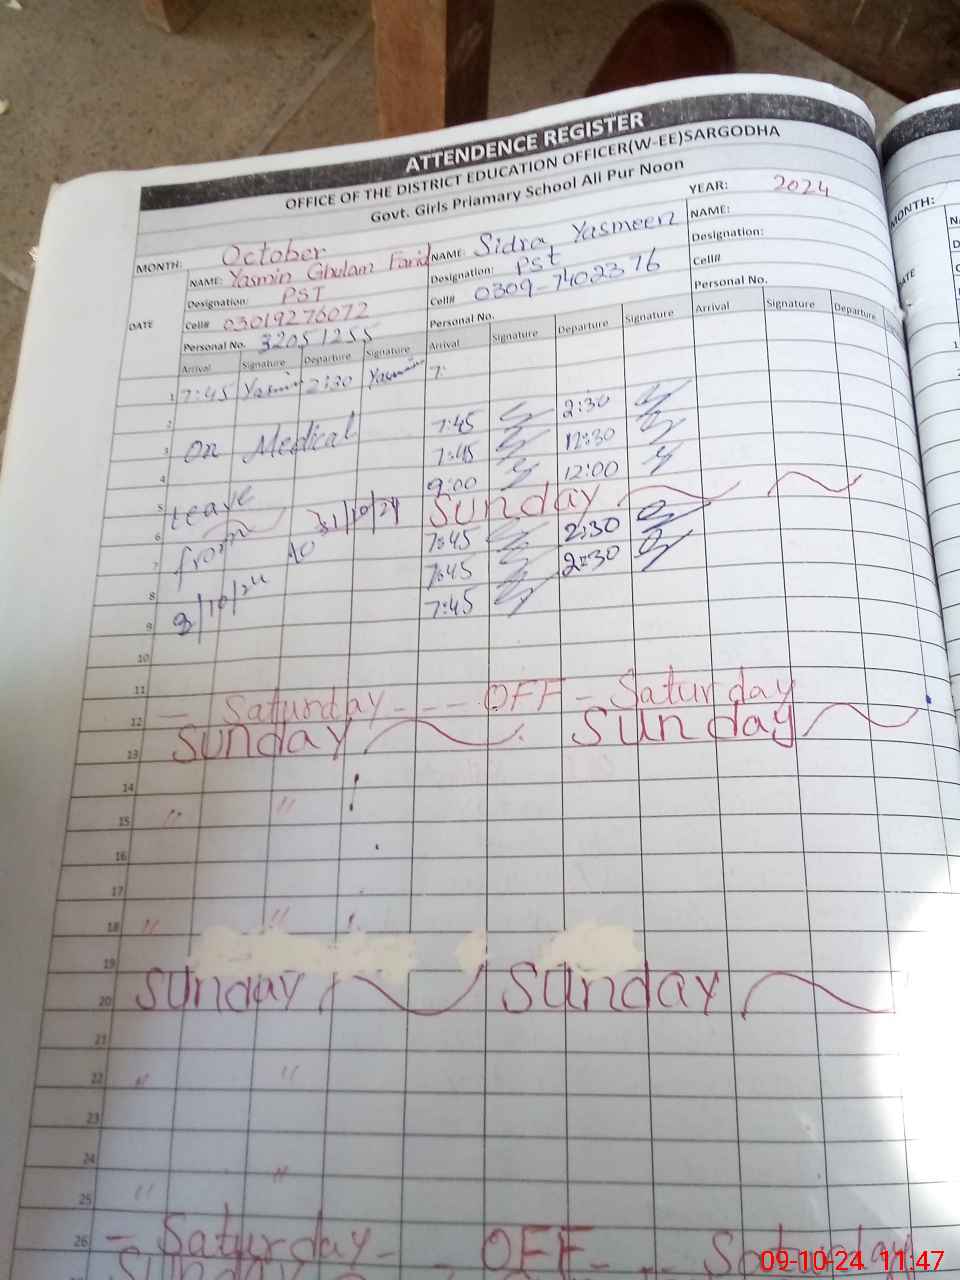 ATTENDENCE REGISTER
OFFICE OF THE DISTRICT EDUCATION OFFICER(W-EE)SARGODHA
Govt. Girls Priamary School Ali Pur Noon
MONTH: October YEAR: 2024
NAME: Yasmin Ghulam Farid NAME: Sidra Yasmeen NAME:
Designation: PST Designation: PST Designation:
DATE Cell# 03019276072 Cell# 0309-7402376 Cell#
Personal No. 32051255 Personal No. Personal No.
Arrival Signature Departure Signature Arrival Signature Departure Signature Arrival Signature Departure
1 7:45 Yasmin 2:30 Yasmin 7:
2 7:45 2:30
3 On Medical 7:45 12:30
4 9:00 12:00
5 Leave Sunday
6 from 31/10/24 7:45 2:30
7 to 7:45 2:30
8 7:45
9 /10/24
10
11
12 - Saturday - - - OFF - Saturday
13 Sunday Sunday
14
15 " "
16
17
18 " "
19
20 Sunday Sunday
21
22 " "
23
24 "
25 "
26 - Saturday - OFF - - - Saturday
Sunday
MONTH:
DATE
09-10-24 11:47